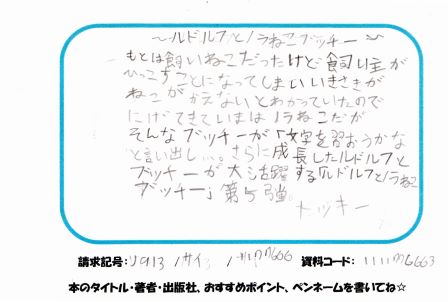 ～ルドルフとノラねこブッチー～
もとは飼いねこだったけど飼い主が
ひっこすことになってしまいいきさきが
ねこがかえないとわかっていたので
にげてきていまはノラねこだが
そんなブッチーが「文字を習おうかな
と言い出し…。さらに成長したルドルフと
ブッチーが大活躍する『ルドルフとノラねこ
ブッチー』第5弾。
トッキー
請求記号: 913 /サイ
資料コード:
本のタイトル・著者・出版社、おすすめポイント、ペンネームを書いてね☆